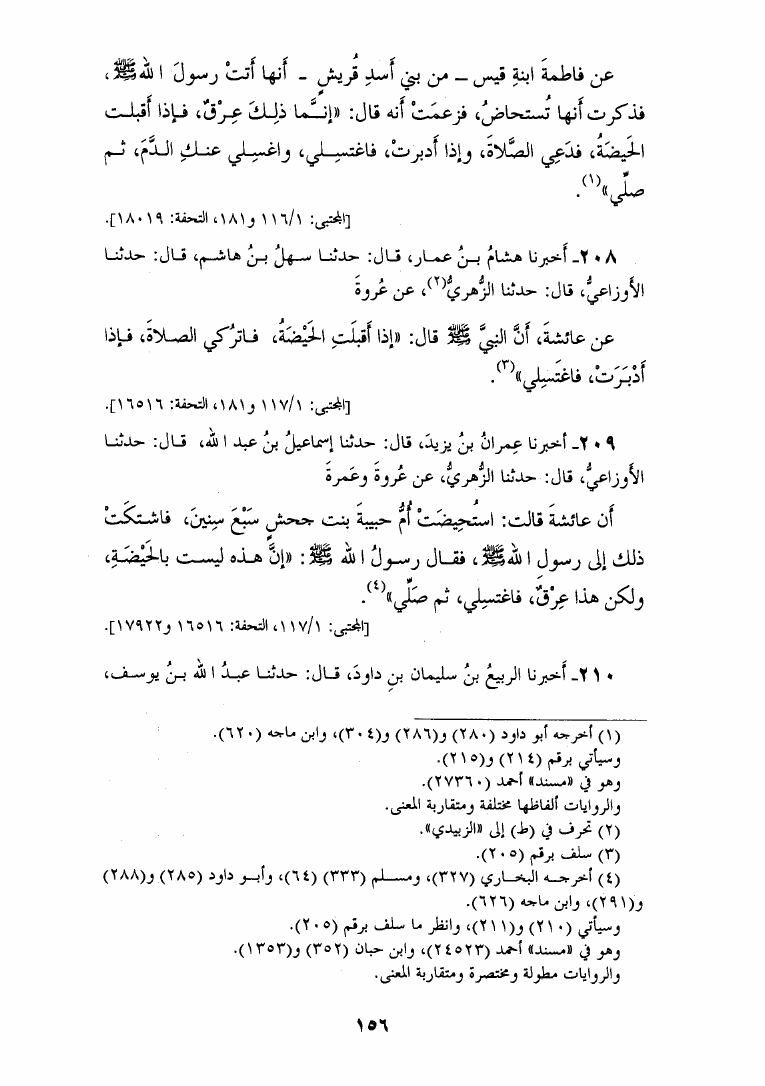 عن فاطمةَ ابنةِ قيس – من بني أَسدِ قُريشٍ – أَنها أَتتْ رسولَ الله ﷺ ،
فذكرت أَنها تُستحاضُ، فزعمَتْ أنه قال: «إنَّما ذلِكَ عِرْقٌ، فإذا أَقبلت
الحَيضَةُ، فدَعِي الصَّلاةَ، وإذا أَدبرتْ، فاغتسِلي، واغسِلي عنكِ الدَّمَ، ثم
صلِّي»(١).
[المجتبى: ١١٦/١ و١٨١، التحفة: ١٨٠١٩].
٢٠٨ـ أخبرنا هشامُ بنُ عمار، قال: حدثنا سهلُ بنُ هاشم، قال: حدثنا
الأوزاعيُّ، قال: حدثنا الزُّهريُّ(٢)، عن عُروةَ
عن عائشةَ، أنَّ النبيَّ ﷺ قال: «إذا أَقبلَتِ الحَيْضَةُ، فاترُكي الصلاةَ، فإذا
أَدْبَرَتْ، فاغتَسِلي»(٣).
[المجتبى: ١١٧/١ و١٨١، التحفة: ١٦٥١٦].
٢٠٩ـ أخبرنا عِمرانُ بنُ يزيدَ، قال: حدثنا إسماعيلُ بنُ عبد الله، قال: حدثنا
الأوزاعيُّ، قال: حدثنا الزُّهريُّ، عن عُروةَ وعَمرةَ
أن عائشةَ قالت: استُحِيضَتْ أُمُّ حبيبةَ بنت جحشٍ سَبْعَ سِنينَ، فاشتكَتْ
ذلك إلى رسولِ الله ﷺ ، فقال رسولُ الله ﷺ : «إنَّ هذه ليست بالحَيْضَةِ،
ولكن هذا عِرْقٌ، فاغتسِلي، ثم صَلِّي»(٤).
[المجتبى: ١١٧/١، التحفة: ١٦٥١٦ و١٧٩٢٢].
٢١٠ـ أخبرنا الربيعُ بنُ سليمان بنِ داودَ، قال: حدثنا عبدُ الله بنُ يوسف،
(١) أخرجه أبو داود (٢٨٠) و(٢٨٦) و(٣٠٤)، وابن ماجه (٦٢٠).
وسيأتي برقم (٢١٤) و(٢١٥).
وهو في «مسند» أحمد (٢٧٣٦٠).
والروايات ألفاظها مختلفة ومتقاربة المعنى.
(٢) تحرف في (ط) إلى «الزبيدي».
(٣) سلف برقم (٢٠٥).
(٤) أخرجه البخاري (٣٢٧)، ومسلم (٣٣٣) (٦٤)، وأبو داود (٢٨٥) و(٢٨٨)
و(٢٩١)، وابن ماجه (٦٢٦).
وسيأتي (٢١٠) و(٢١١)، وانظر ما سلف برقم (٢٠٥).
وهو في «مسند» أحمد (٢٤٥٢٣)، وابن حبان (٣٥٢) و(١٣٥٣).
والروايات مطولة ومختصرة ومتقاربة المعنى.
١٥٦